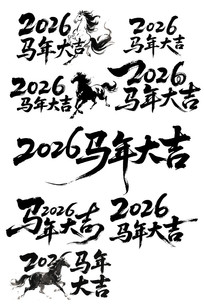 2026
马年大吉
2026
马年大吉
2026
马年大吉
2026
马年大吉
2026马年大吉
马2026
年大吉
2026
马年大吉
2026马年
大吉